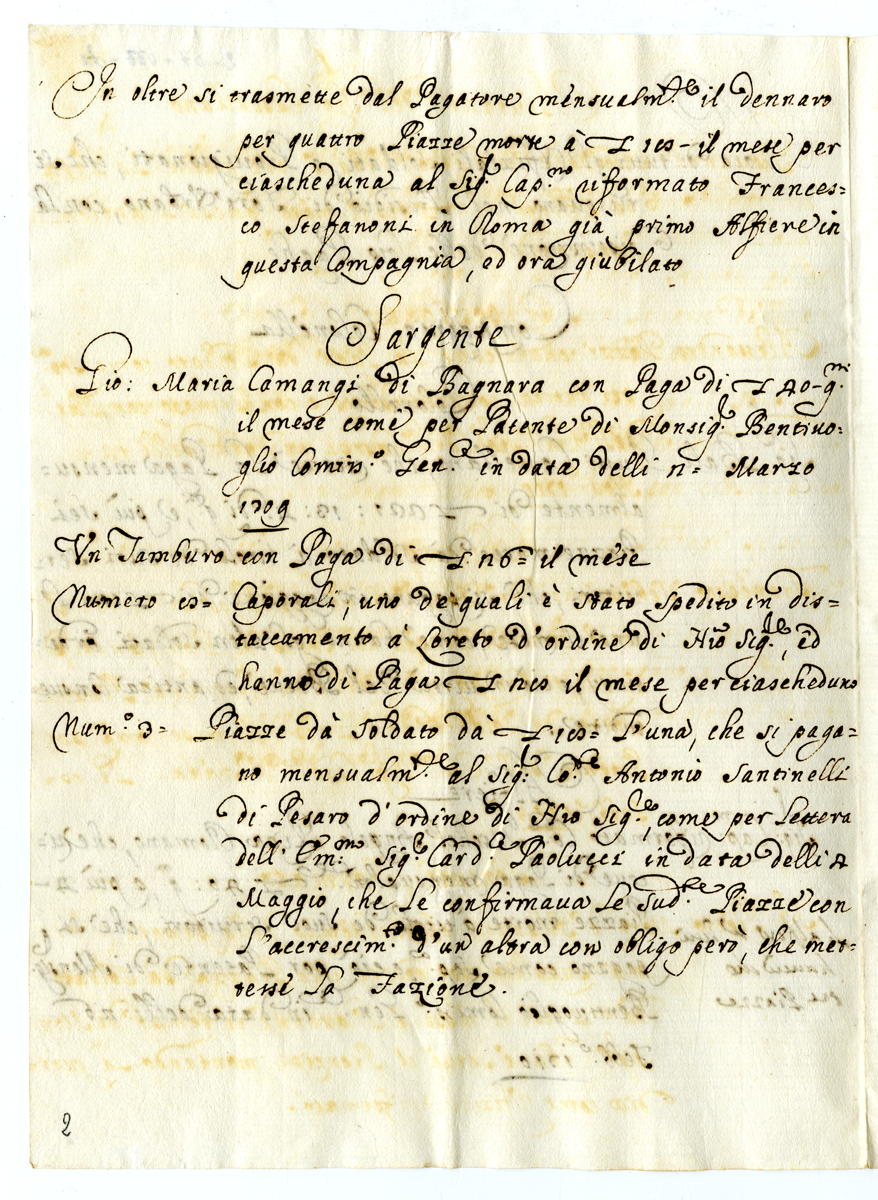 In oltre si trasmette dal Pagatore mensualm.te il dennaro
per quattro Piazze morte à il mese per
ciascheduna al Sig.r Cap.no riformato Frances=
co Stefanoni in Roma già primo Alfiere in
questa Compagnia, ed ora giubilato
Sargente
Gio: Maria Camangi di Bagnara con Paga di 40
il mese come per Patente di Monsig.r Bentivo=
glio Comis.o Gen.le in data delli Marzo
1709
Un Tamburo con Paga di il mese
Numero Caporali, uno de quali è stato spedito in dis=
taccamento à Loreto d'ordine di Nro Sig.re, ed
hanno di Paga il mese per ciascheduno
Num.o 3= Piazze dà Soldato dà l'una, che si paga=
no mensualm.te al Sig.r Co.te Antonio Santinelli
di Pesaro d'ordine di Nro Sig.re, come per Lettera
dell' Em.mo Sig.r Card.l Paolucci in data delli
Maggio, che le confirmava le sud.te Piazze con
l'accrescim.to d'un altra con obligo però, che met=
tesse la Fazione.
2